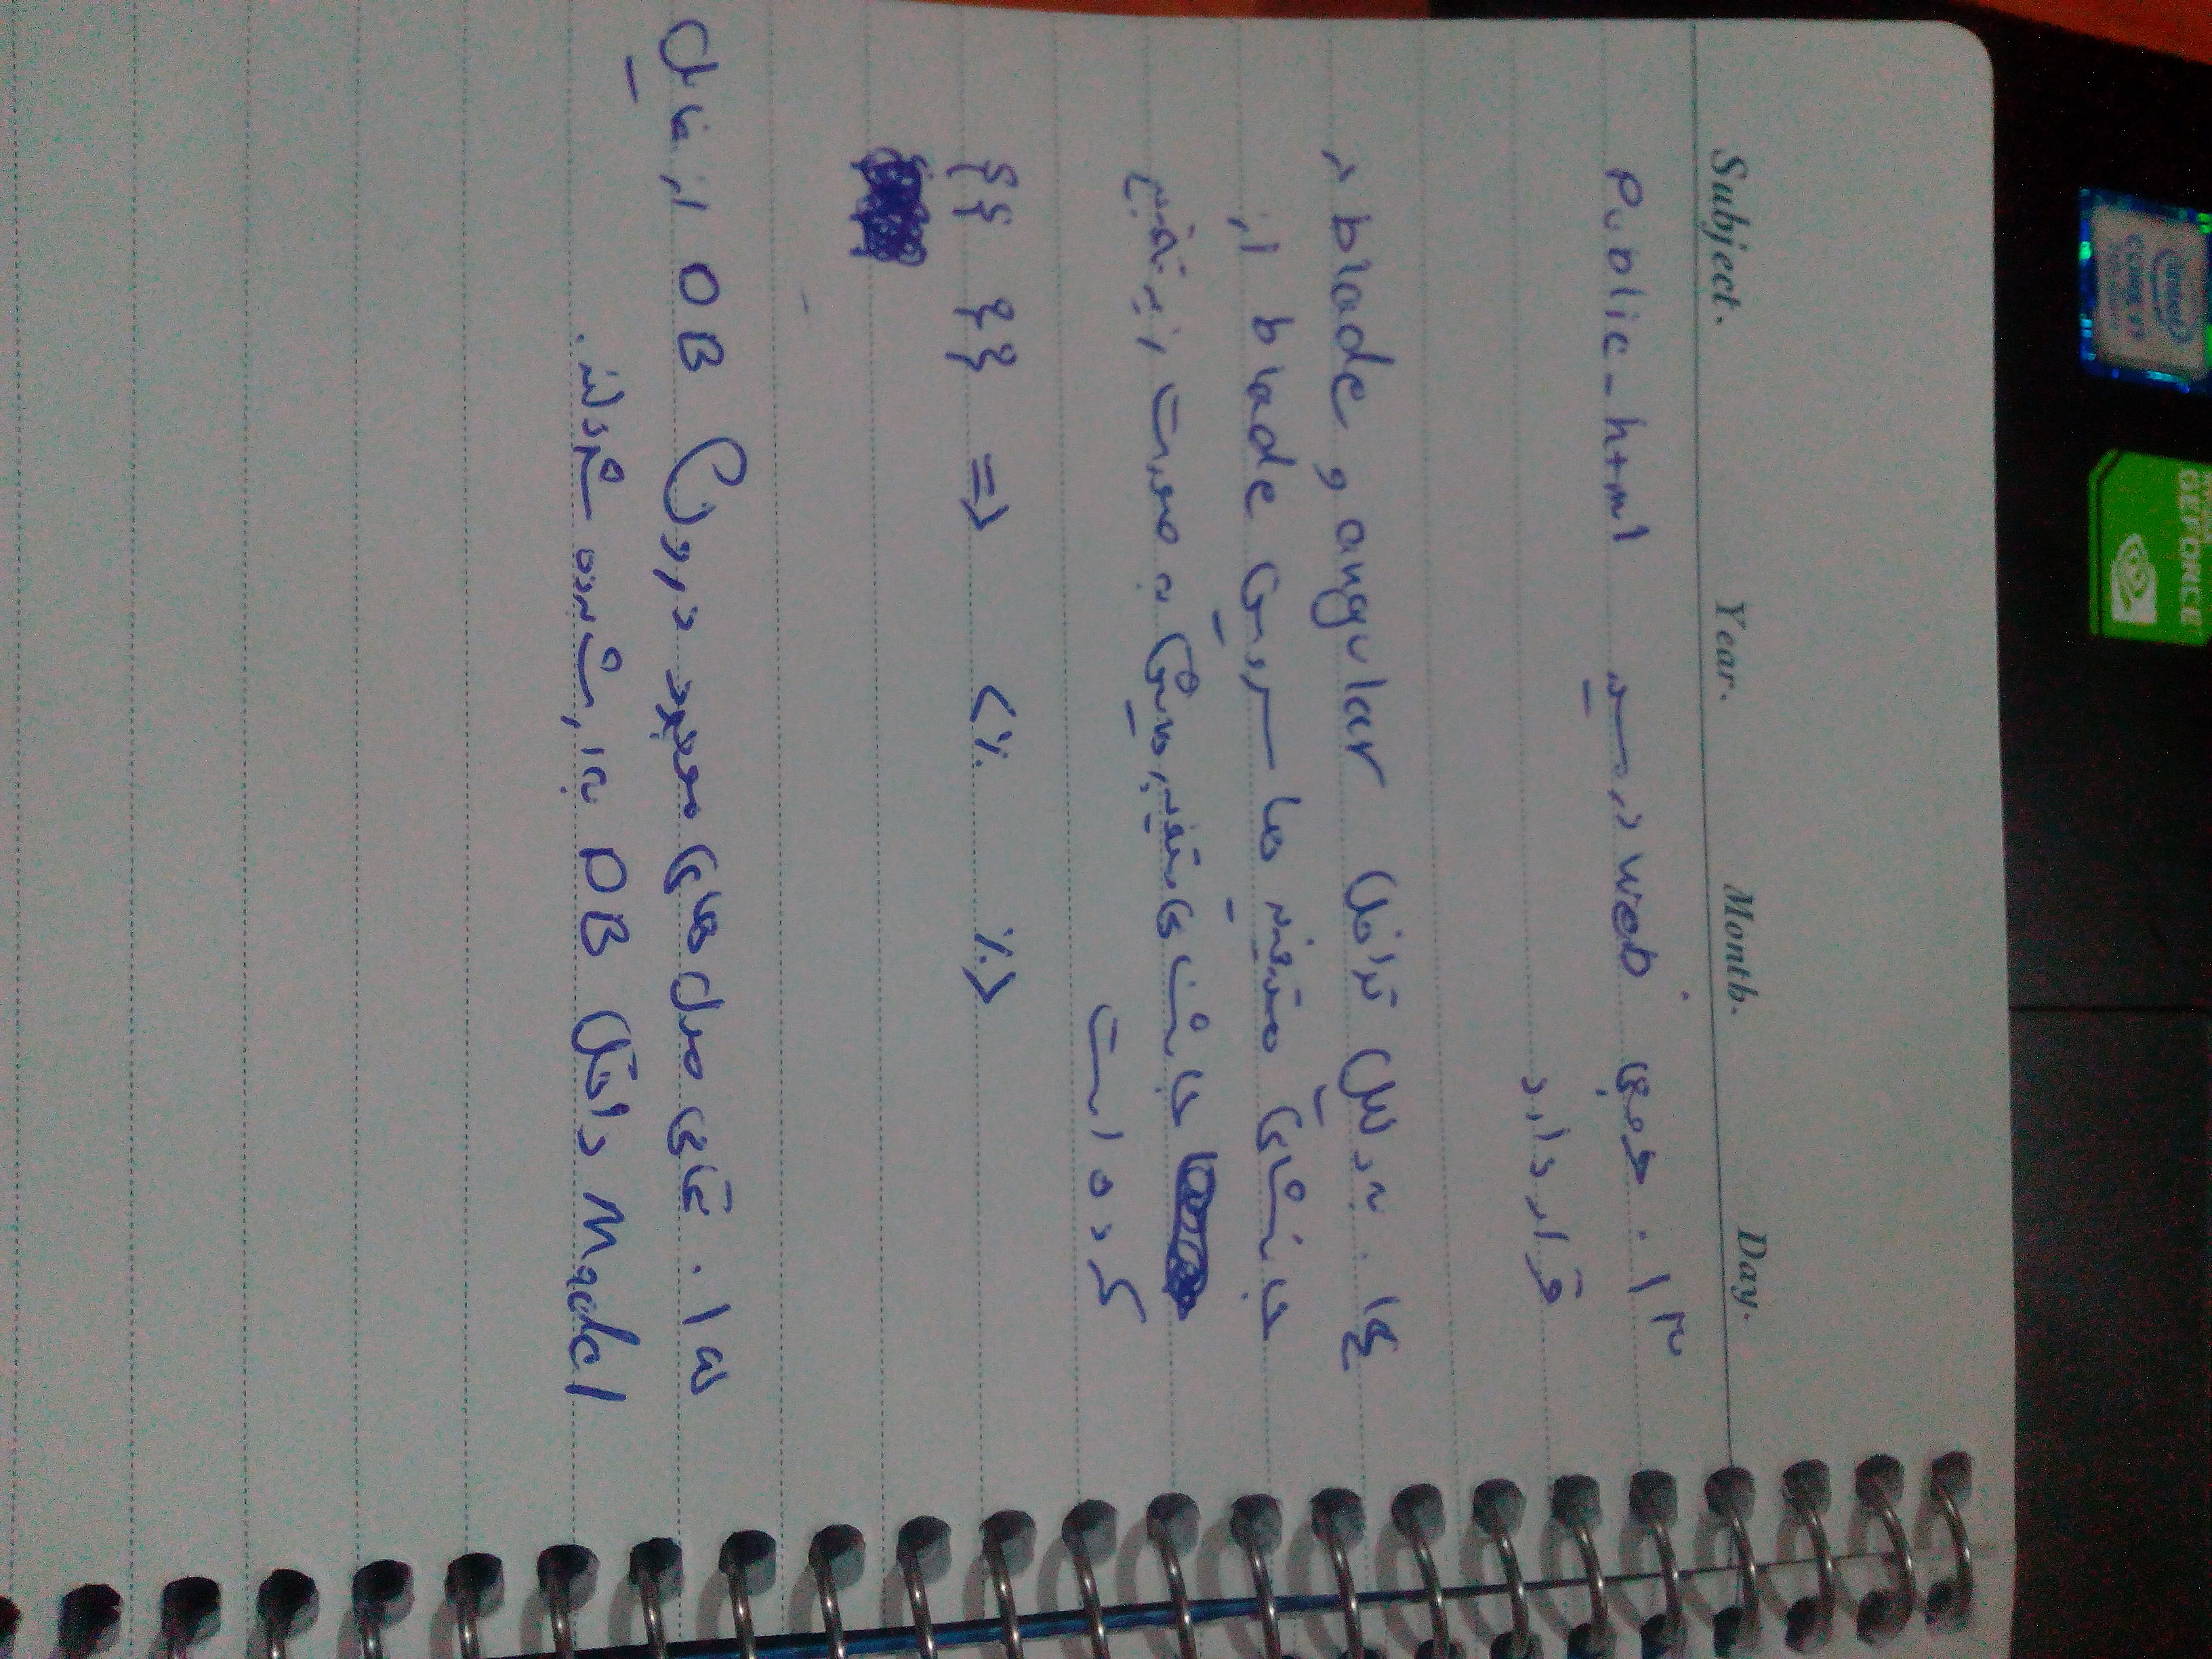 intel
CORE i7
GEFORCE
Subject. Year. Month. Day.
۱۳. خروجی web در مسیر Public_html
قرار دارد
۱٤. به دلیل تداخل angular و blade در
جانشانی متغییر ها سرویس blade از
جانشانی متغییر هایش به صورت زیر تغییر
کرده است
{{ }} => <% %>
۱۵. تمامی مدل های موجود درون DB از فایل
Model داخل DB به ارث برده شده‌اند.